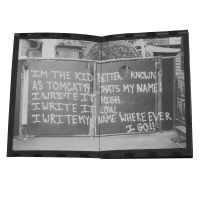 IM THE KID BETTER KNOWN
AS TOMCAT THATS MY NAME
I WRITE IT HIGH
I WRITE IT LOW
I WRITE MY NAME WHERE EVER
I GO!!